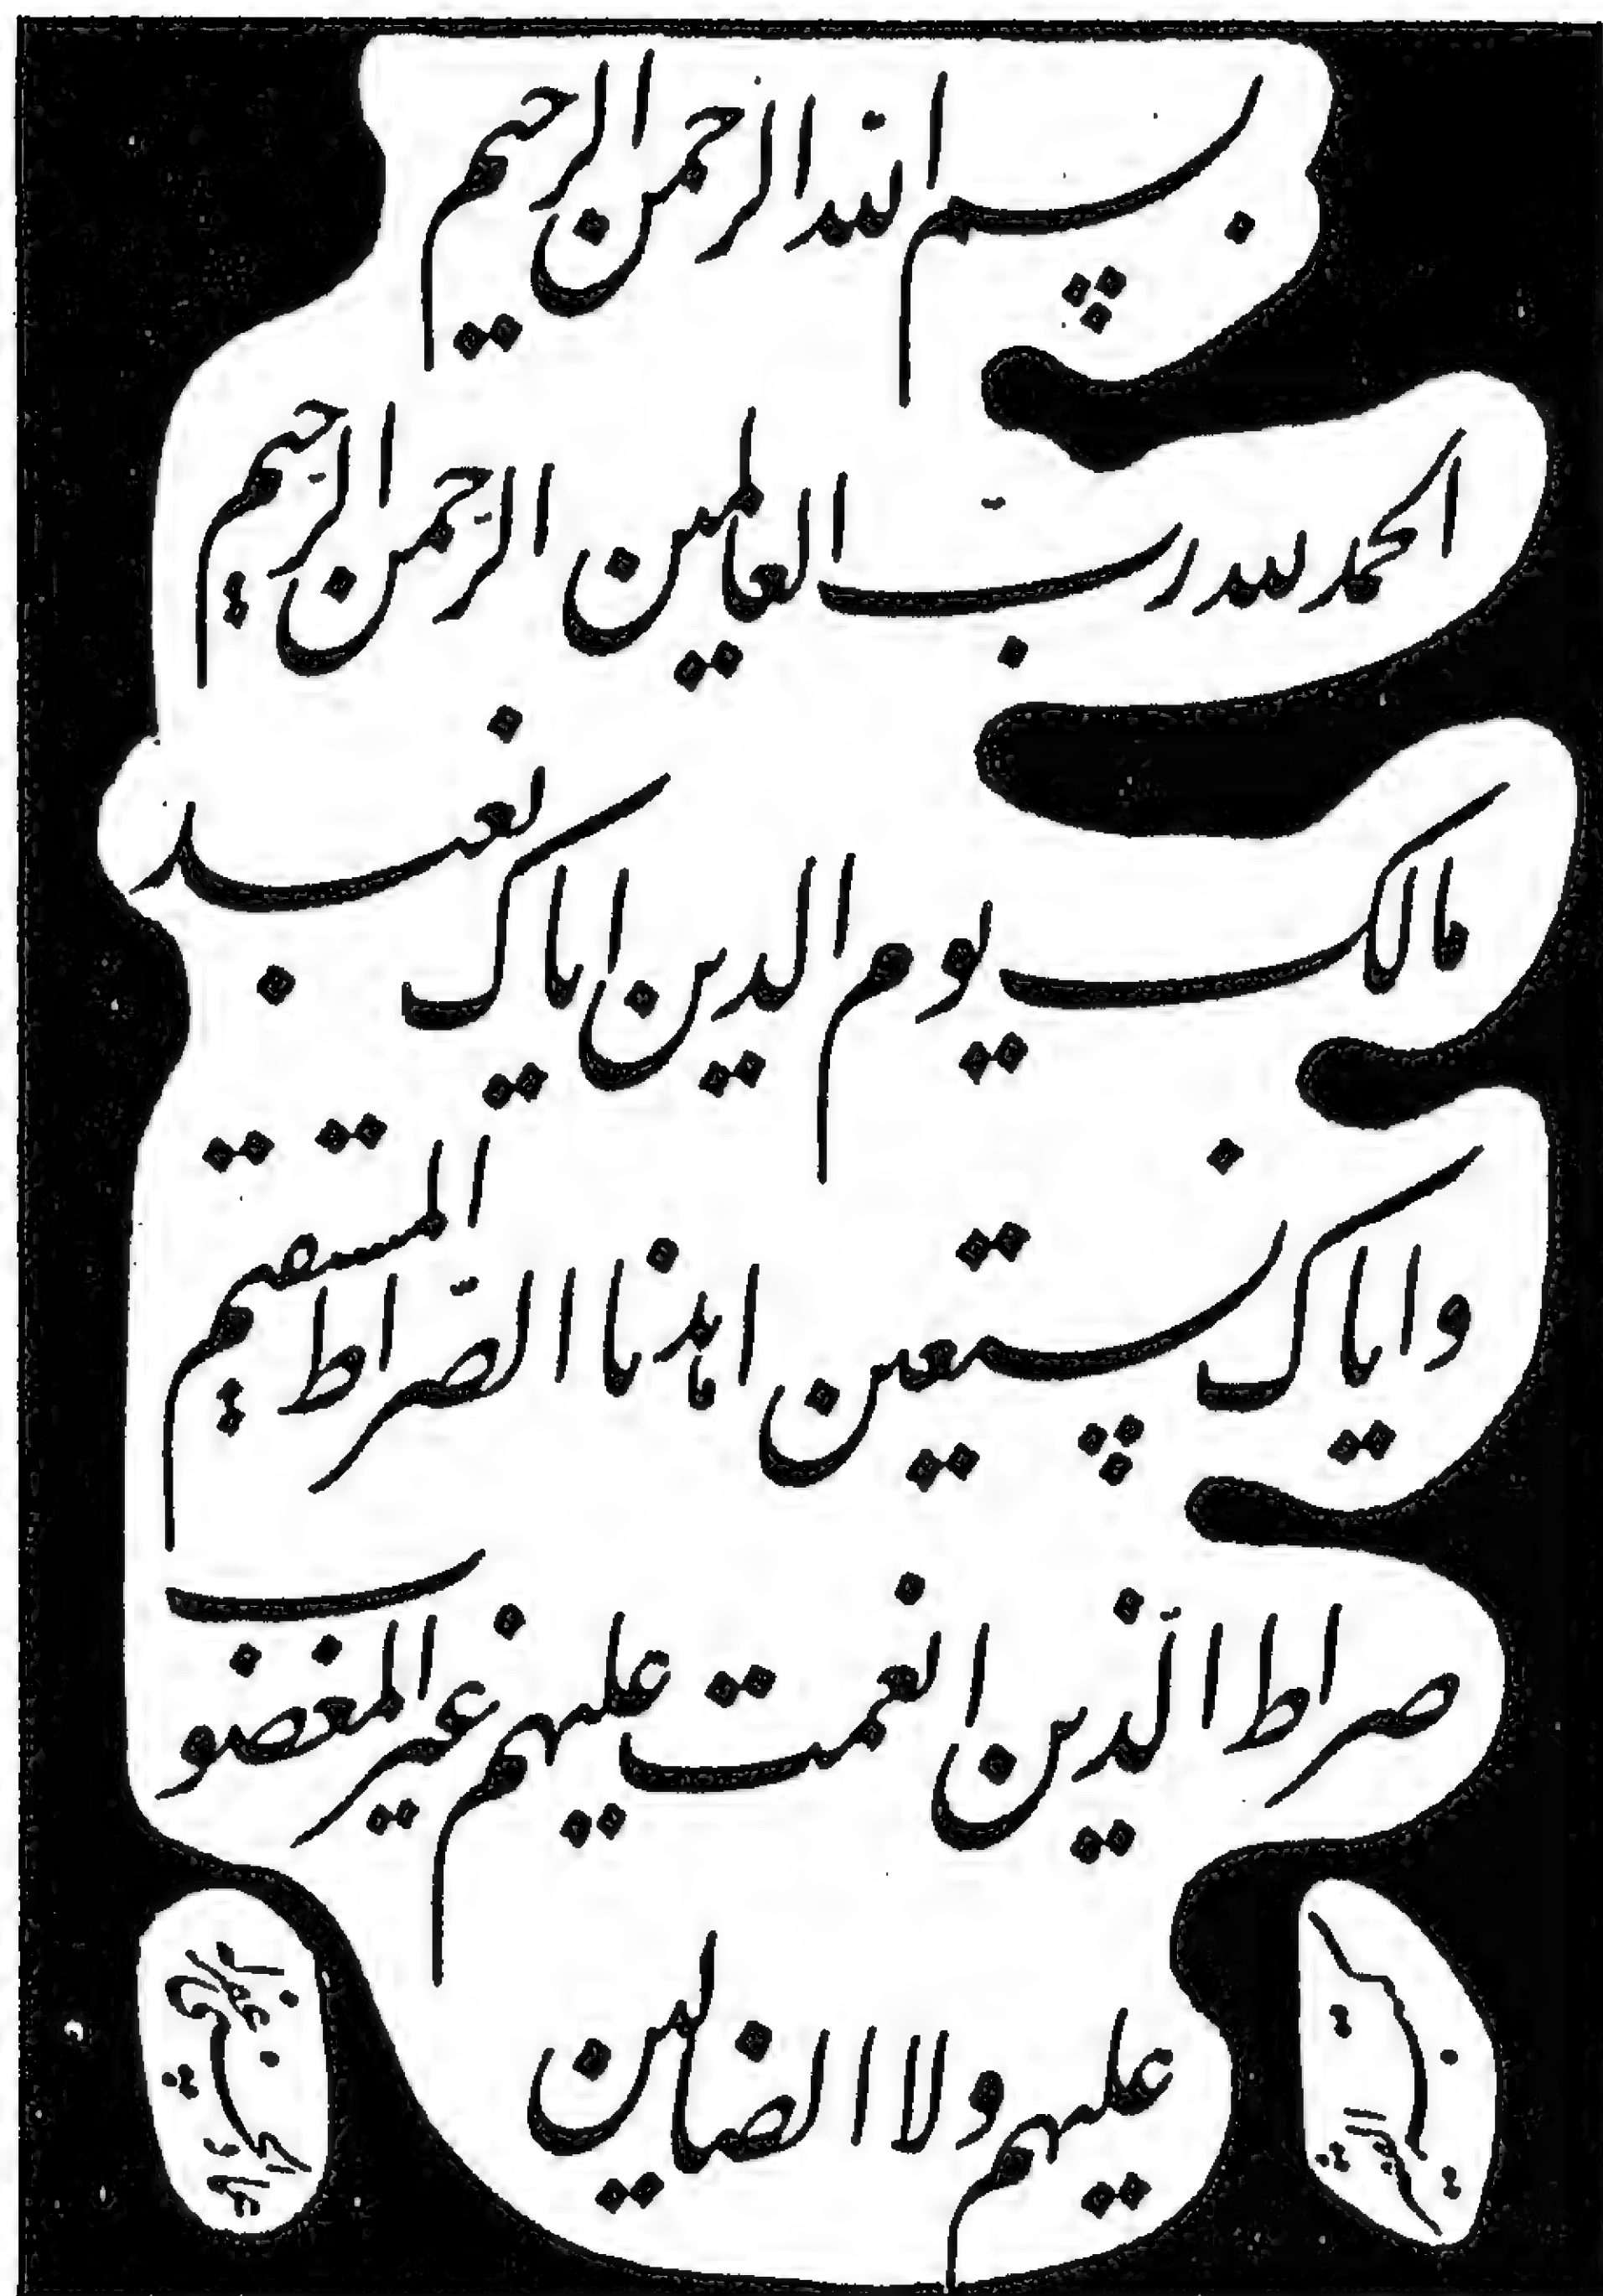 بسم الله الرحمن الرحيم
الحمد لله رب العالمين الرّحمن الرّحيم
مالك يوم الدين اياك نعبد
واياك نستعين اهدنا الصّراط المستقيم
صراط الّذين انعمت عليهم غير المغضوب
عليهم ولا الضالين